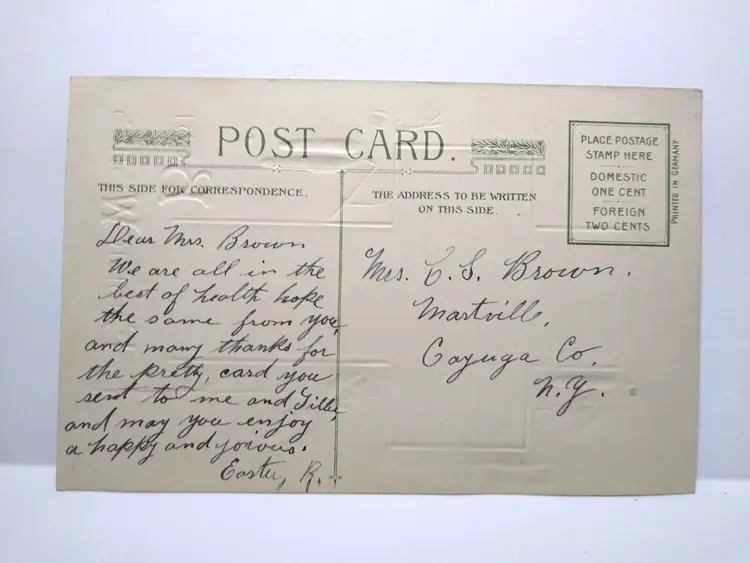 POST CARD.
THIS SIDE FOR CORRESPONDENCE.
THE ADDRESS TO BE WRITTEN
ON THIS SIDE.
PLACE POSTAGE
STAMP HERE
DOMESTIC
ONE CENT
FOREIGN
TWO CENTS
PRINTED IN GERMANY
Dear Mrs. Brown
We are all in the
best of health hope
the same from you,
and many thanks for
the pretty, card you
sent to me and Tillie,
and may you enjoy
a happy and joious.
Easter, R.
Mrs. C. S. Brown.
Martville,
Cayuga Co.
N.Y.